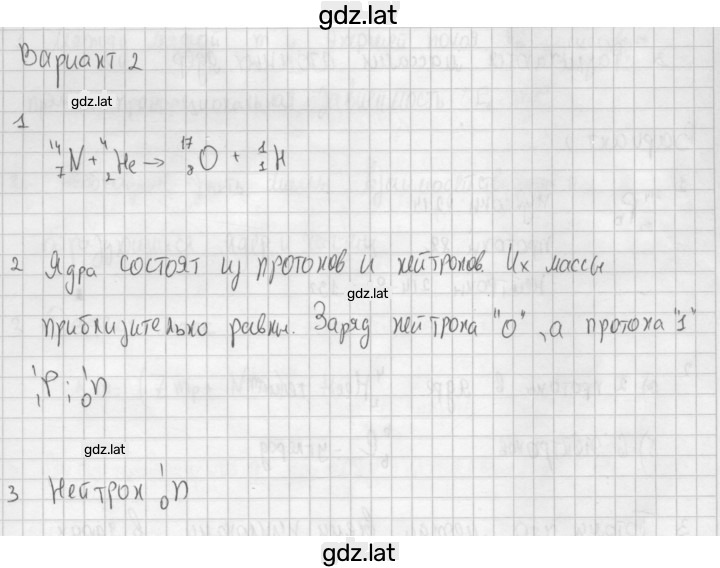 gdz.lat
Вариант 2
gdz.lat
1
¹⁴₇N + ⁴₂He → ¹⁷₈O + ¹₁H
2 Ядра состоят из протонов и нейтронов. Их массы
gdz.lat
приблизительно равны. Заряд нейтрона "0", а протона "1"
¹₁P ; ¹₀n
gdz.lat
3 Нейтрон ¹₀n
gdz.lat